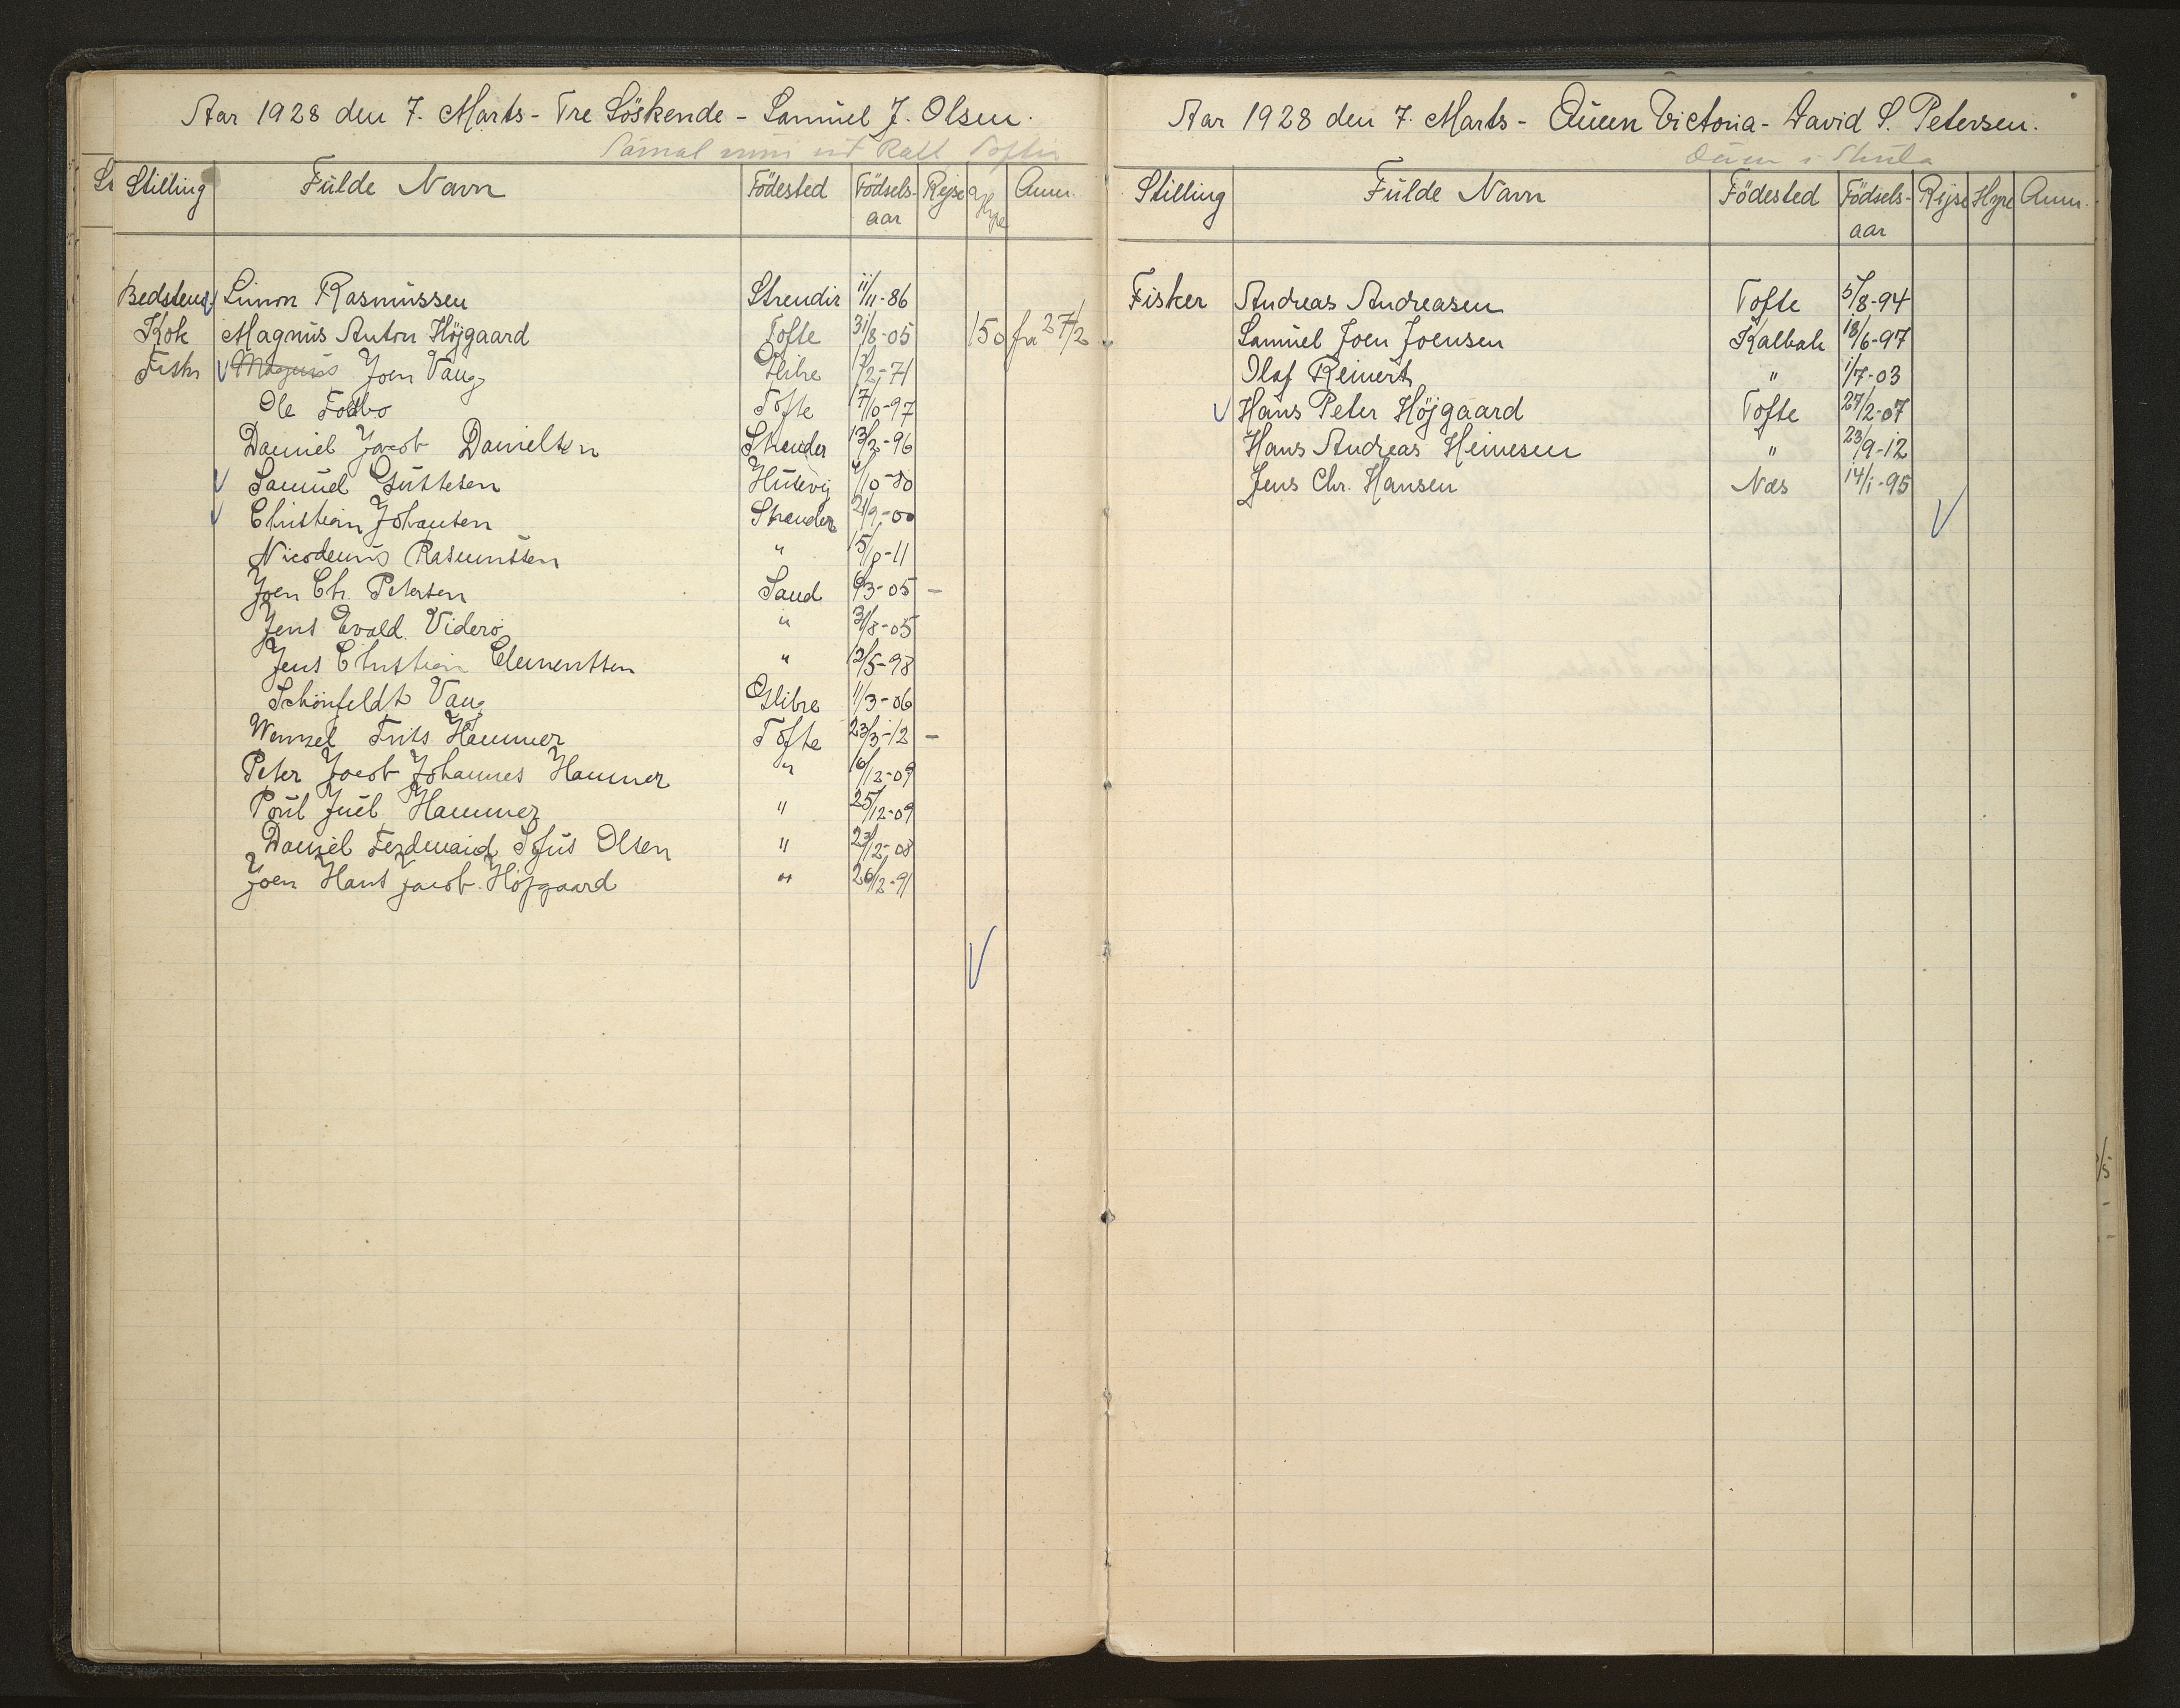 Aar 1928 den 7. Marts - Tre Söskende - Samuel J. Olsen.
Stilling Fulde Navn Födested Födsels-aar Rejse Hyre Anm.
Bedstem. Simon Rasmussen Strendir 11/11-86
Kok Magnus Anton Höjgaard Tofte 31/8-05 150 fra 27/2
Fisker Magnus Joen Vang Glibre 1/2-71
Ole Fodbo Tofte 17/10-97
Daniel Jacob Danielsen Strender 13/2-96
Samuel Gustesen Husevig 4/10-80
Christian Johansen Strender 21/9-00
Nicodemus Rasmussen " 15/8-11
Joen Chr. Petersen Sand 6/3-05 -
Jens Evald Viderö " 31/8-05
Jens Christian Clementsen " 12/5-98
Schönfeldt Vang Glibre 11/3-06
Wenzel Frits Hammer Tofte 23/3-12 -
Peter Jacob Johannes Hammer " 16/12-09
Poul Juel Hammer " 25/12-09
Daniel Ferdinand Sofus Olsen " 23/12-08
Joen Hans Jacob Höjgaard " 26/12-91
Aar 1928 den 7. Marts - Queen Victoria - David S. Petersen.
Stilling Fulde Navn Födested Födsels-aar Rejse Hyre Anm.
Fisker Andreas Andreasen Tofte 5/8-94
Samuel Joen Joensen Kalbak 18/6-97
Olaf Reinert " 1/7-03
Hans Peter Höjgaard Tofte 27/2-07
Hans Andreas Heinesen " 23/9-12
Jens Chr. Hansen Næs 14/1-95